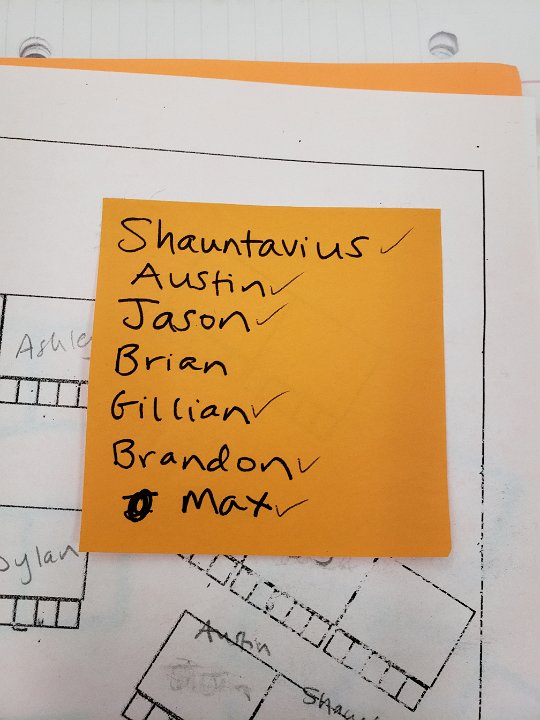 Shauntavius ✓
Austin ✓
Jason ✓
Brian
Gillian ✓
Brandon ✓
Max ✓
Ashle
Dylan
Austin
Shaun